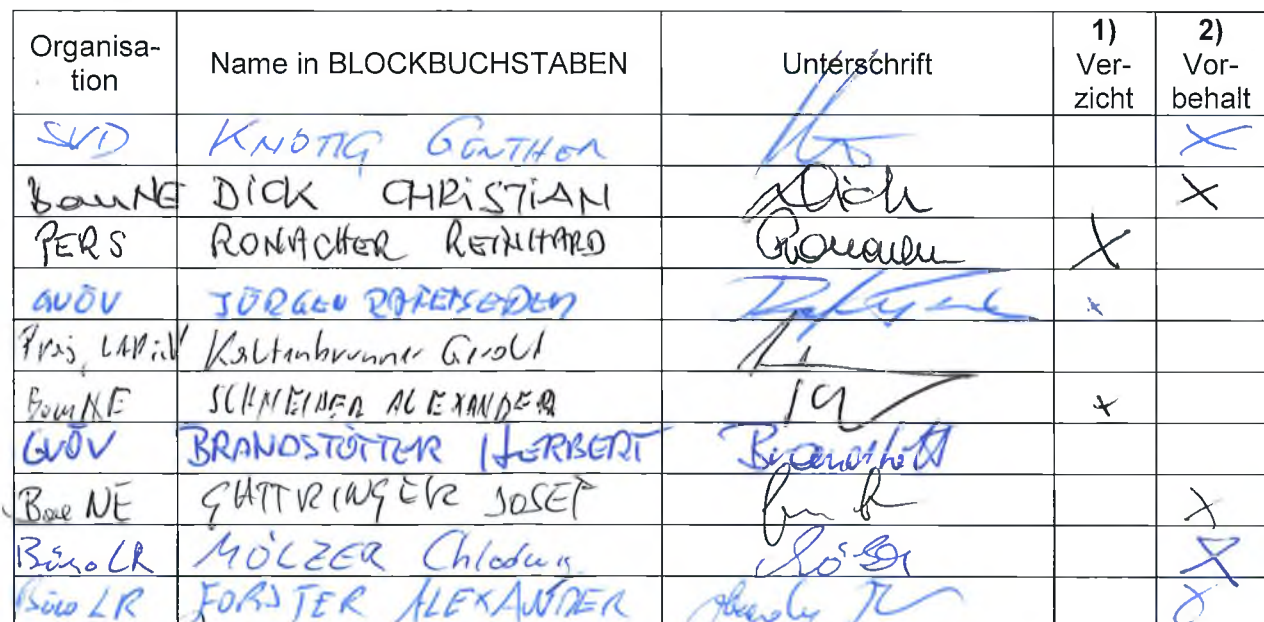 Organisa- Name in BLOCKBUCHSTABEN Unterschrift 1) 2)
tion Ver- Vor-
zicht behalt
SVD KNOTIG GÜNTHER X
BauNE DICK CHRISTIAN Dick X
PERS RONACHER REINHARD Ronacher X
GVÖV JÜRGEN x
Proj. Kaltenbrunner Gerolt
BauNE SCHNEIDER ALEXANDER x
GVÖV BRANDSTÖTTER HERBERT Brandstött
BauNE GATTRINGER JOSEF X
Büro LR MÖLZER Chlodwig X
Büro LR FORSTER ALEXANDER X